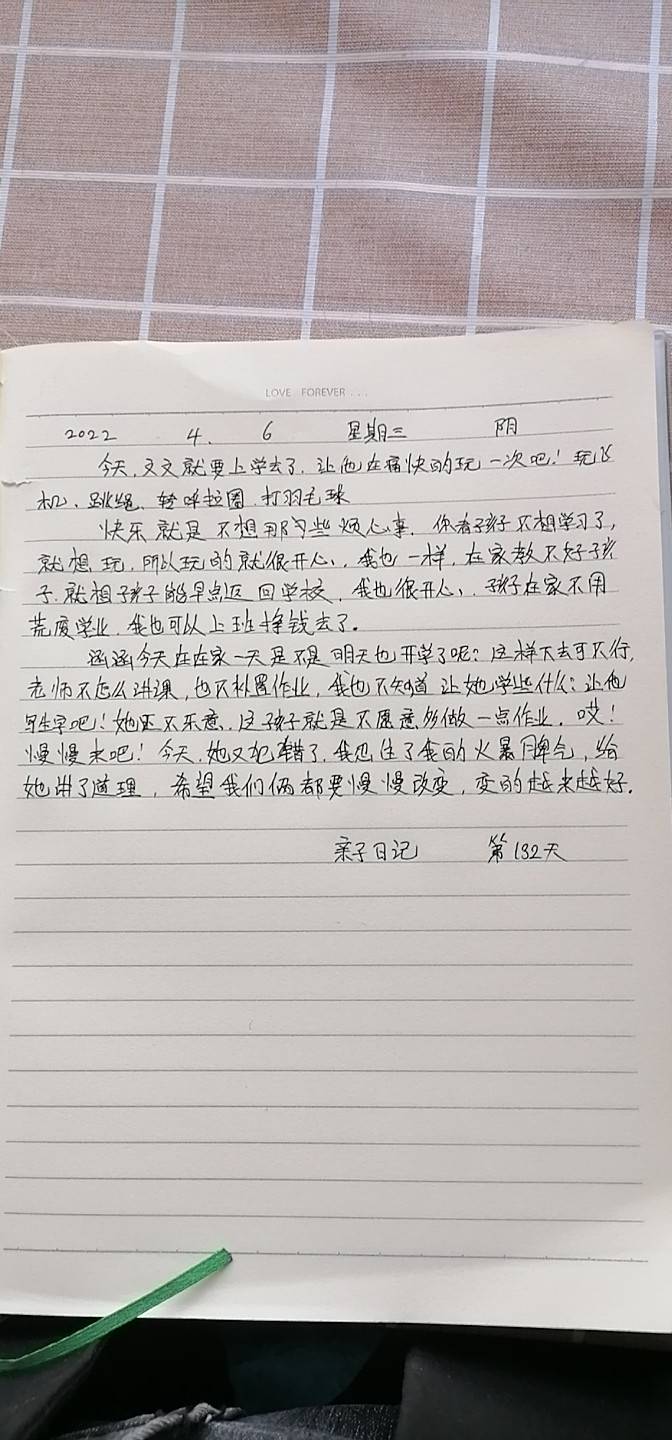 LOVE FOREVER . . .
2022 4. 6 星期三 阴
今天,文文就要上学去了.让他在痛快的玩一次吧!玩飞
机、跳绳、转呼拉圈.打羽毛球
快乐就是不想那些烦心事.你看孩子不想学习了,
就想玩,所以玩的就很开心,.我也一样,在家教不好孩
子.就想孩子能早点返回学校,我也很开心,.孩子在家不用
荒废学业.我也可以上班挣钱去了.
涵涵今天在在家一天是不是明天也开学了呢?这样下去可不行,
老师不怎么讲课,也不布置作业,我也不知道让她学些什么?让他
写生字吧!她还不乐意.这孩子就是不愿意多做一点作业.哎!
慢慢来吧!今天,她又犯错了.我忍住了我的火暴脾气,给
她讲了道理,希望我们俩都要慢慢改变,变的越来越好.
亲子日记 第132天